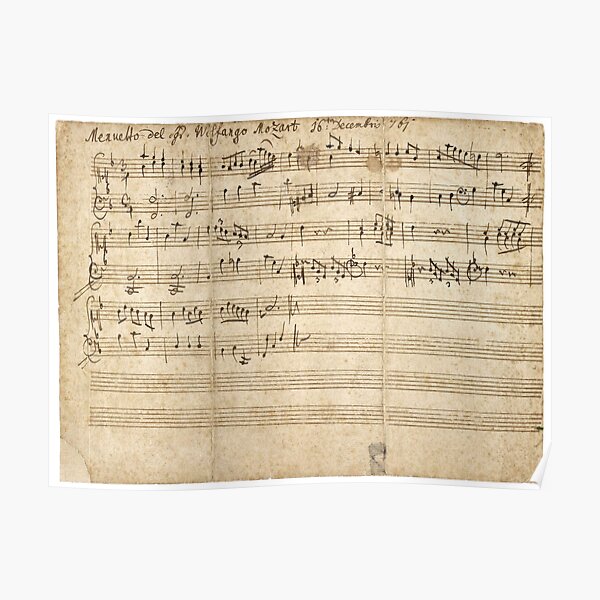 Menuetto del Sr. Wolfango Mozart 16ten Decembr: 761